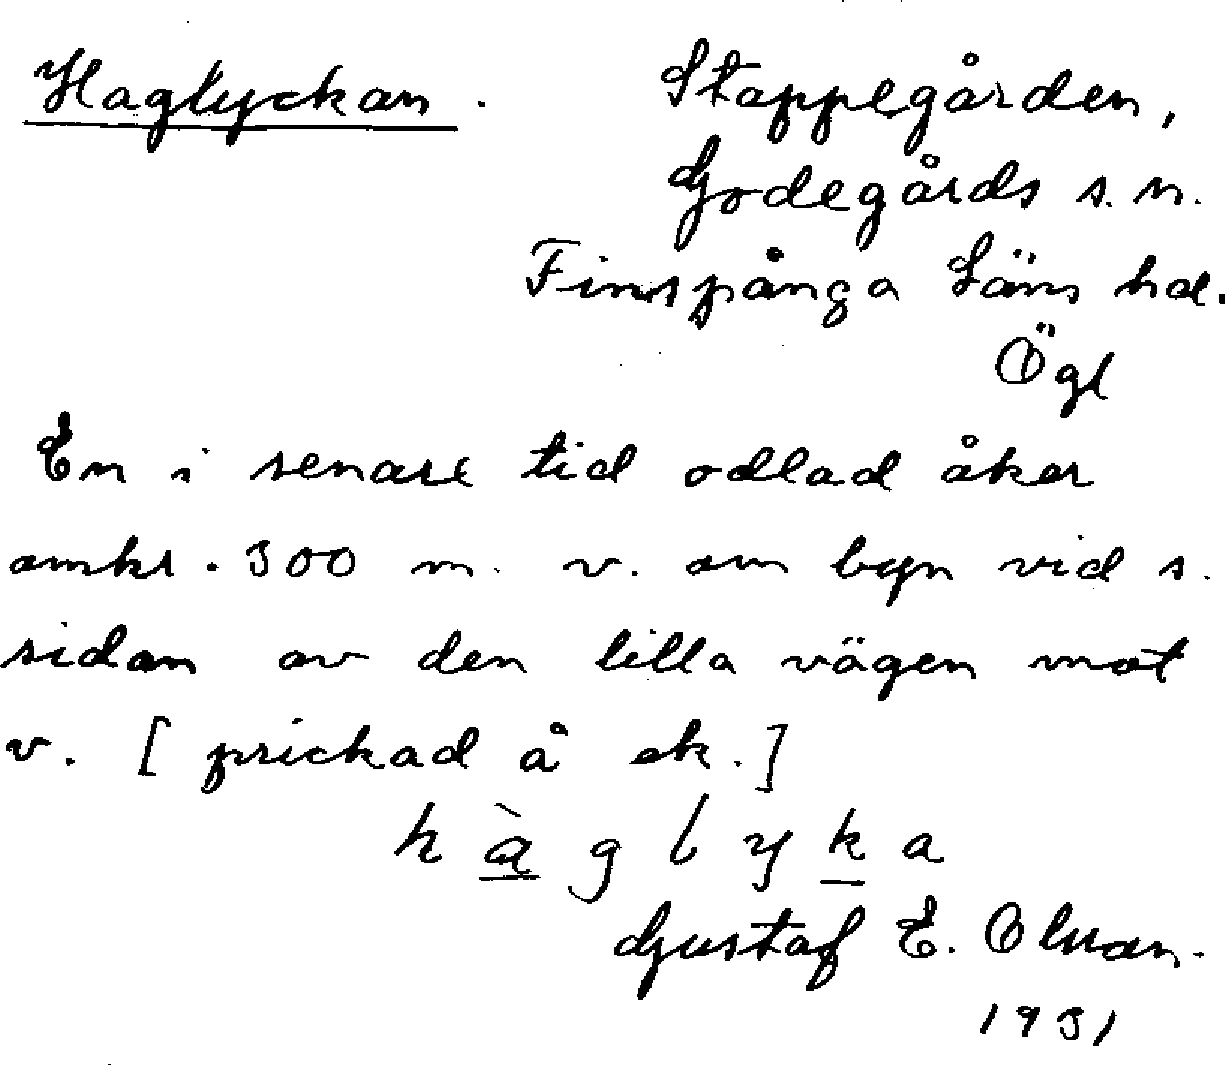 Haglyckan. Stappegården,
Godegårds s.n.
Finspånga Läns hd.
Ögl
En i senare tid odlad åker
omkr. 300 m. v. om byn vid s.
sidan av den lilla vägen mot
v. [prickad å ek.]
hàglyka
Gustaf E. Olsson.
1931